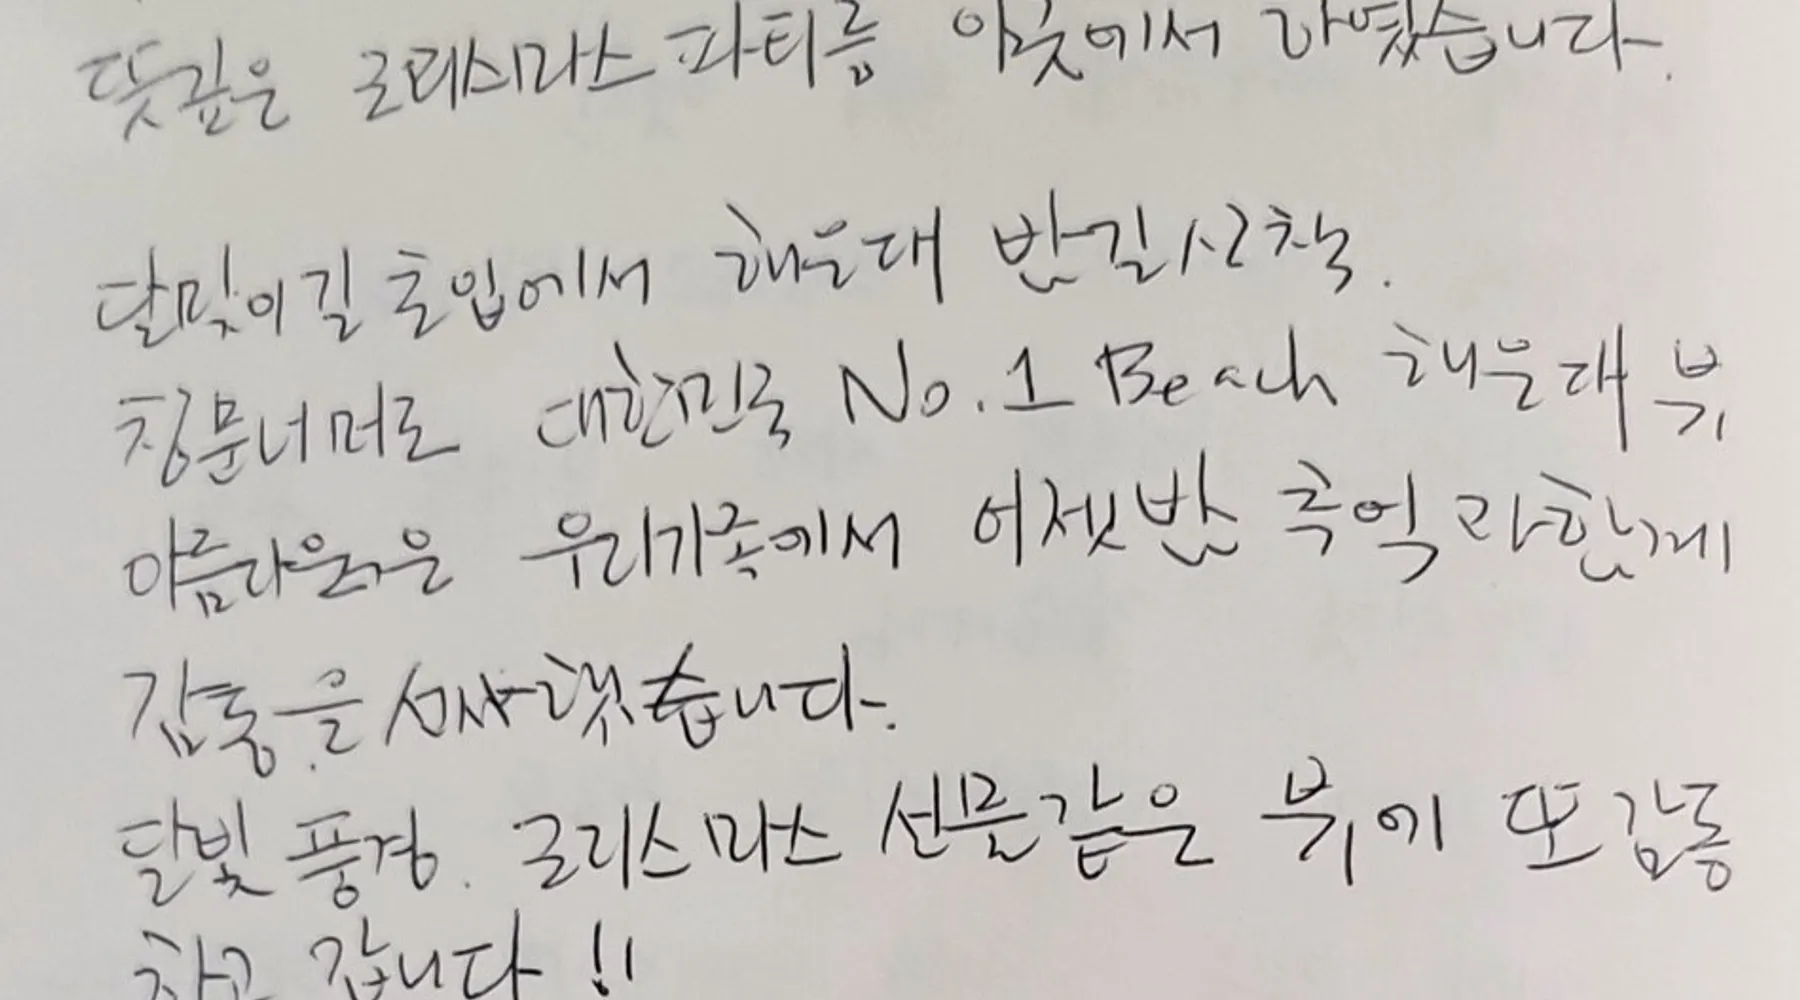 뜻깊은 크리스마스 파티를 이곳에서 하였습니다.
달맞이길 초입에서 해운대 밤길산책.
창문너머로 대한민국 No.1 Beach 해운대 뷰
아름다운 우리가족에서 어젯밤 추억과함께
감동을 선사했습니다.
달빛 풍경. 크리스마스 선물같은 뷰에 또 감동
하고 갑니다!!